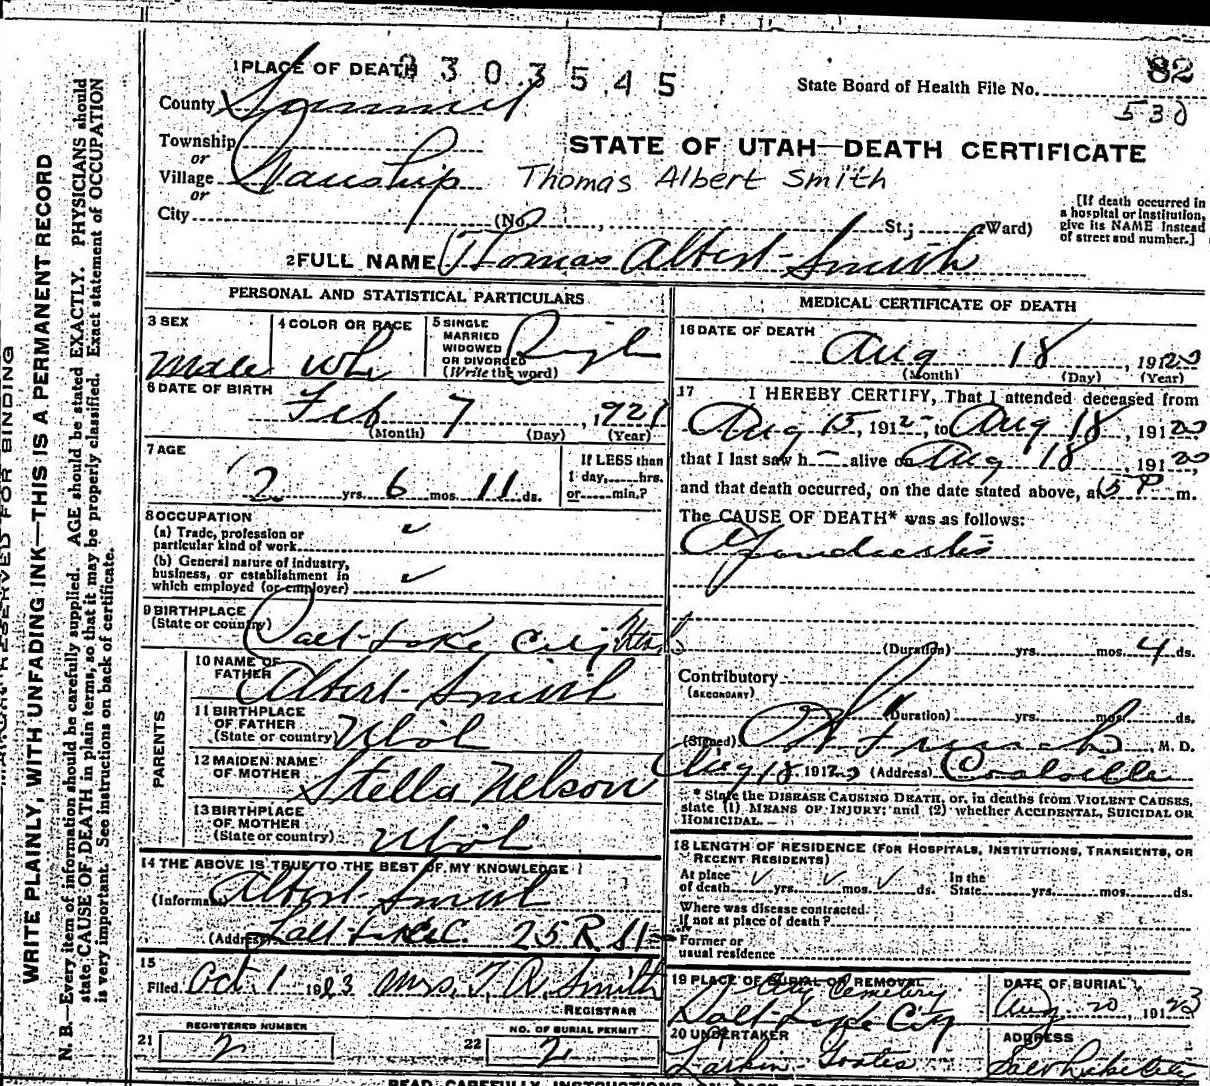 82
1 PLACE OF DEATH 2303545
State Board of Health File No.
530
County Summit
Township
or
STATE OF UTAH—DEATH CERTIFICATE
Village Wanship
Thomas Albert Smith
or
City (No. , St.; Ward)
[If death occurred in
a hospital or institution,
give its NAME instead
of street and number.]
2 FULL NAME Thomas Albert Smith
PERSONAL AND STATISTICAL PARTICULARS
3 SEX
Male
4 COLOR OR RACE
Whi
5 SINGLE
MARRIED
WIDOWED
OR DIVORCED
(Write the word)
6 DATE OF BIRTH
Feb 7, 1921
(Month) (Day) (Year)
7 AGE
2 yrs. 6 mos. 11 ds.
If LESS than
1 day, hrs.
or min.?
8 OCCUPATION
(a) Trade, profession or
particular kind of work
(b) General nature of industry,
business, or establishment in
which employed (or employer)
9 BIRTHPLACE
(State or country)
Salt Lake City Utah
PARENTS
10 NAME OF
FATHER
Albert Smith
11 BIRTHPLACE
OF FATHER
(State or country)
Utah
12 MAIDEN NAME
OF MOTHER
Stella Nelson
13 BIRTHPLACE
OF MOTHER
(State or country)
Utah
14 THE ABOVE IS TRUE TO THE BEST OF MY KNOWLEDGE
(Informant) Albert Smith
(Address) Salt Lake C. 25 R St
15
Filed Oct. 1 1923 Mrs. T. R. Smith
REGISTRAR
21 REGISTERED NUMBER
2
22 NO. OF BURIAL PERMIT
2
MEDICAL CERTIFICATE OF DEATH
16 DATE OF DEATH
Aug 18, 191
(Month) (Day) (Year)
17 I HEREBY CERTIFY, That I attended deceased from
Aug 15, 191 , to Aug 18, 191
that I last saw h alive on Aug 18, 191
and that death occurred, on the date stated above, at 5 P m.
The CAUSE OF DEATH* was as follows:
(Duration) yrs. mos. 4 ds.
Contributory
(SECONDARY)
(Duration) yrs. mos. ds.
(Signed) , M. D.
Aug 18 191 (Address) Coalville
* State the DISEASE CAUSING DEATH, or, in deaths from VIOLENT CAUSES,
state (1) MEANS OF INJURY; and (2) whether ACCIDENTAL, SUICIDAL OR
HOMICIDAL.
18 LENGTH OF RESIDENCE (FOR HOSPITALS, INSTITUTIONS, TRANSIENTS, OR
RECENT RESIDENTS)
At place
of death yrs. mos. ds.
In the
State yrs. mos. ds.
Where was disease contracted
If not at place of death?
Former or
usual residence
19 PLACE OF BURIAL OR REMOVAL
City Cemetery
Salt Lake City
DATE OF BURIAL
Aug. 20, 1923
20 UNDERTAKER
Larkin
ADDRESS
Salt Lake
MARGIN RESERVED FOR BINDING
WRITE PLAINLY, WITH UNFADING INK—THIS IS A PERMANENT RECORD
N. B.—Every item of information should be carefully supplied. AGE should be stated EXACTLY. PHYSICIANS should
state CAUSE OF DEATH in plain terms, so that it may be properly classified. Exact statement of OCCUPATION
is very important. See instructions on back of certificate.